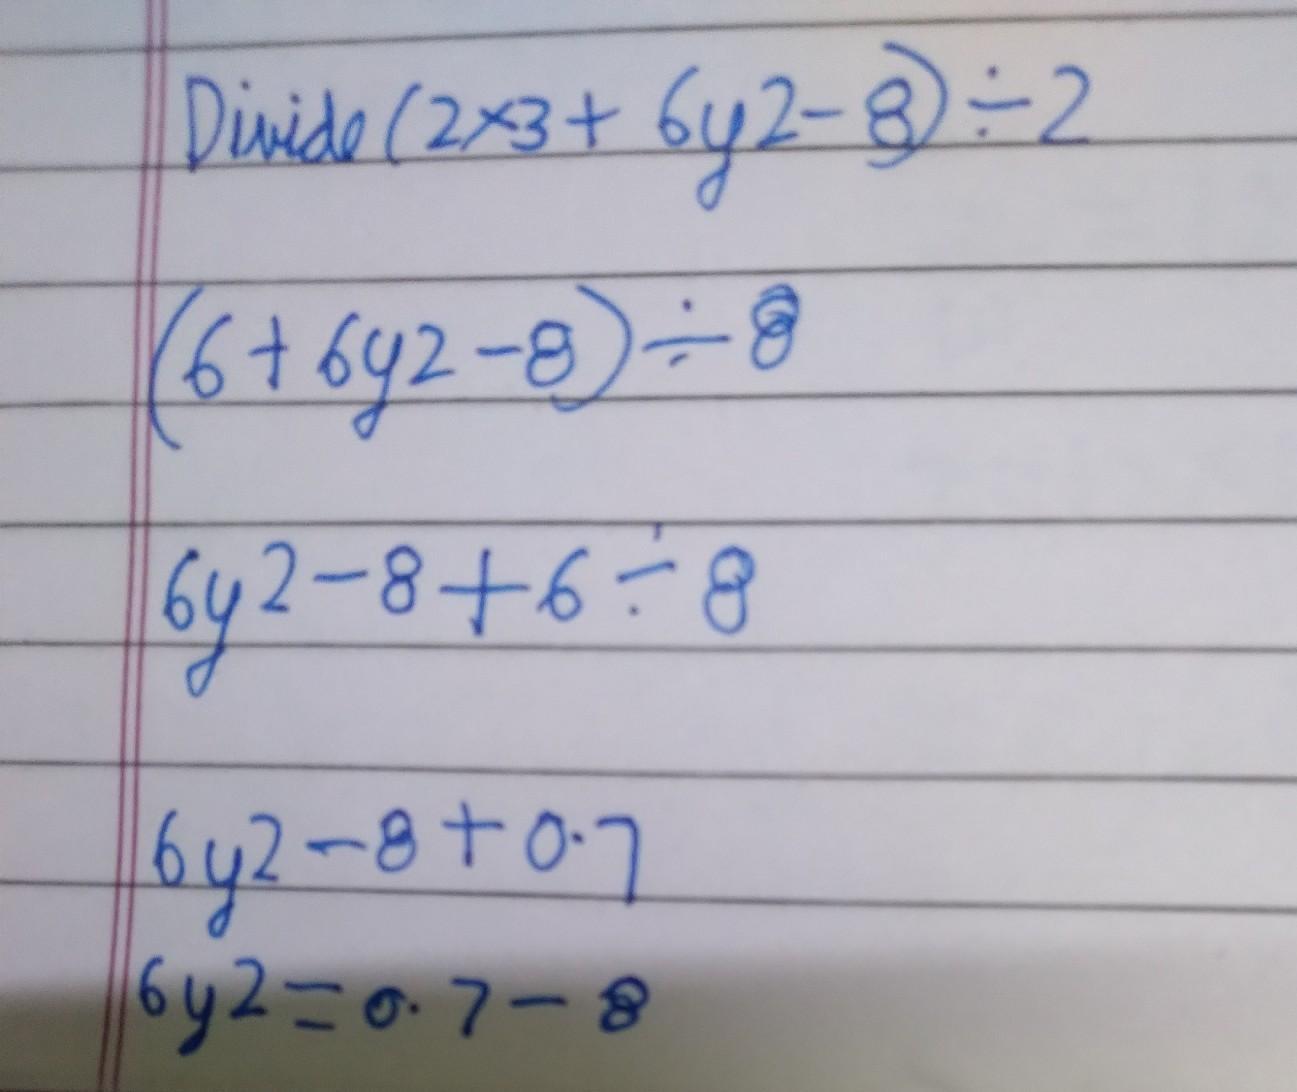 Divide (2×3 + 6y2 - 8) ÷ 2
(6 + 6y2 - 8) ÷ 8
6y2 - 8 + 6 ÷ 8
6y2 - 8 + 0.7
6y2 = 0.7 - 8